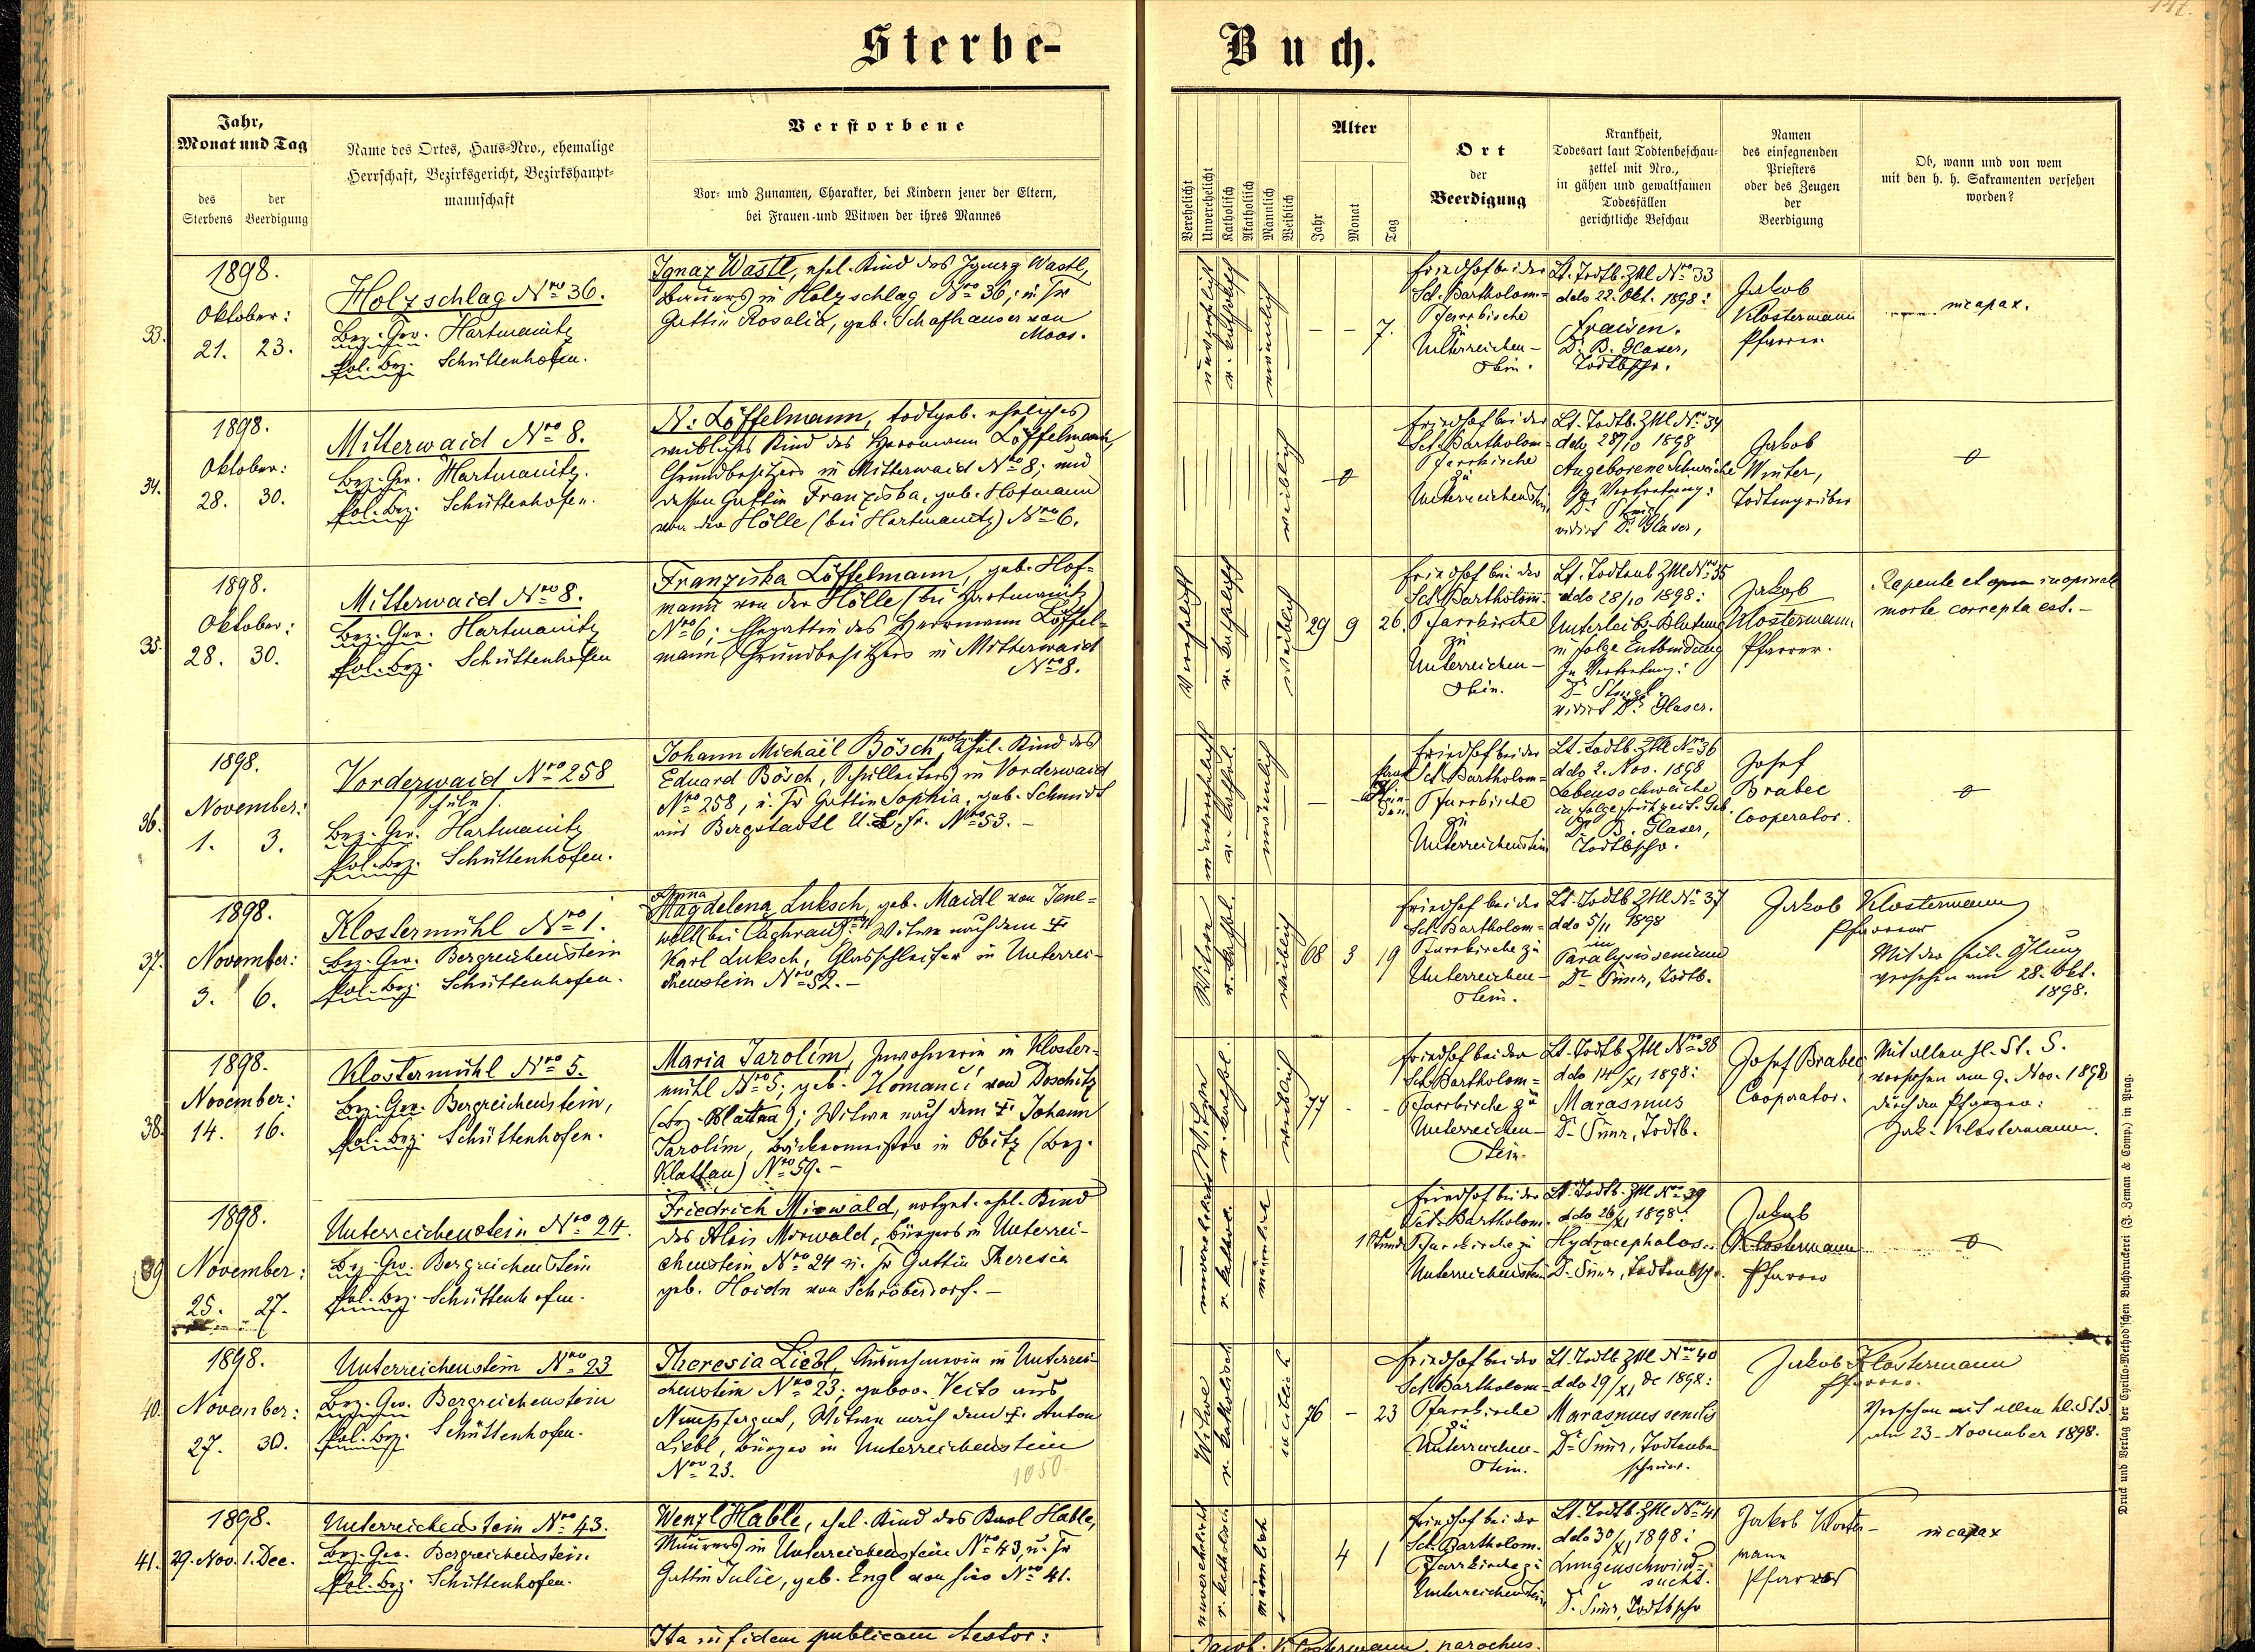 147.
Sterbe-
Buch.
Jahr,
Monat und Tag
des Sterbens
der Beerdigung
Name des Ortes, Haus-Nro., ehemalige
Herrschaft, Bezirksgericht, Bezirkshaupt-
mannschaft
Verstorbene
Vor- und Zunamen, Charakter, bei Kindern jener der Eltern,
bei Frauen und Witwen der ihres Mannes
Verehelicht
Unverehelicht
Katholisch
Akatholisch
Männlich
Weiblich
Alter
Jahr
Monat
Tag
Ort
der
Beerdigung
Krankheit,
Todesart laut Todtenbeschau-
zettel mit Nro.,
in gähen und gewaltsamen
Todesfällen
gerichtliche Beschau
Namen
des einsegnenden
Priesters
oder des Zeugen
der
Beerdigung
Ob, wann und von wem
mit den h. h. Sakramenten versehen
worden?
33.
1898.
Oktober:
21. 23.
Holzschlag Nro 36.
Bez. Ger. Hartmanitz
Pol. Bez. Schüttenhofen.
Ignaz Wastl, ehel. Kind des Wastl,
Bauers in Holzschlag Nro 36; u. Gattin Rosalia, geb. Schafhauser von
Moos.
unverehelicht
r. katholisch
männlich
– – 7.
Friedhof bei der
Sct. Bartholom=
Pfarrkirche
zu
Unterreichen-
stein.
Lt. Todtb. Zttl Nro 33
ddo 22. Okt. 1898:
Fraisen.
Dr. B. Glaser,
Todtbschr.
Jakob
Klostermann
Pfarrer
incapax.
34.
1898.
Oktober:
28. 30.
Mitterwaid Nro 8.
Bez. Ger. Hartmanitz.
Pol. Bez. Schüttenhofen.
N: Löffelmann, todtgeb. eheliches
weibliches Kind des Herrmann Löffelmann,
Grundbesitzers in Mitterwaid Nro 8; und
dessen Gattin Franziska, geb. Hofmann
von der Hölle (bei Hartmanitz) Nro 6.
weiblich
0
Friedhof bei der
Sct. Bartholom=
Pfarrkirche
zu
Unterreichenstein
Lt. Todtb. Zttl Nro 34
ddo 28/10 1898
Angeborene Schwäche
In Vertretung:
Dr.
vidirt Dr. Glaser,
Jakob
Winter,
Todtengräber
0
35.
1898.
Oktober:
28. 30.
Mitterwaid Nro 8.
Bez. Ger. Hartmanitz
Pol. Bez. Schüttenhofen
Franziska Löffelmann, geb. Hof=
mann von der Hölle (bei Hartmanitz)
Nro 6; Ehegattin des Herrmann Löffel=
mann, Grundbesitzers in Mitterwaid
Nro 8.
Verehelicht
r. katholisch
weiblich
29 9 26.
Friedhof bei der
Sct. Bartholom=
Pfarrkirche
zu
Unterreichen-
stein.
Lt. Todtenb. Zttl Nro 35
ddo 28/10 1898:
Unterleibs-Blutung
in folge Entbindung
In Vertretung:
Dr.
vidirt Dr. Glaser.
Jakob
Klostermann
Pfarrer.
Repente et inopinate
morte correpta est.–
36.
1898.
November:
1. 3.
Vorderwaid Nro 258
Schule
Bez. Ger. Hartmanitz
Pol. Bez. Schüttenhofen.
Johann Michaël Bösch, notget. ehel. Kind des
Eduard Bösch, Schulleiters in Vorderwaid
Nro 258, u. Gattin Sophia, geb. Schmidt
aus Bergstadtl Nro 53.–
unverehelicht
r. kathol.
männlich
–
Friedhof bei der
Sct. Bartholom=
Pfarrkirche
zu
Unterreichenstein
Lt. Todtb. Zttl Nro 36
ddo 2. Nov. 1898
Lebensschwäche
in folge frühzeit. Geb.
Dr. B. Glaser,
Todtbschr.
Josef
Brabec
Cooperator.
0
37.
1898.
November:
3. 6.
Klostermühl Nro 1.
Bez. Ger. Bergreichenstein
Pol. Bez. Schüttenhofen.
Anna
Magdelena Luksch, geb. Maidl von
Witwe nach dem †
Karl Luksch, Glasschleifer in Unterrei-
chenstein Nro 52.–
Witwe
r. kathol.
weiblich
68 3 19
Friedhof bei der
Sct. Bartholom=
Pfarrkirche zu
Unterreichen-
stein.
Lt. Todtb Zttl Nro 37
ddo 5/11 1898
Paralysis senium
Dr. , Todtb.
Jakob Klostermann
Pfarrer
Mit der heil. Ölung
versehen am 28. Okt.
1898.
38.
1898.
November:
14. 16.
Klostermühl Nro 5.
Bez. Ger. Bergreichenstein,
Pol. Bez. Schüttenhofen.
Maria Jarolím, Inwohnerin in Kloster-
mühl Nro 5; geb. von Doschitz
(Bez. Blatna); Witwe nach dem † Johann
Jarolím, Bäckermeister in Obitz (Bez.
Klattau) Nro 59.–
Witwe
r. kathol.
weiblich
77 - -
Friedhof bei der
Sct. Bartholom=
Pfarrkirche zu
Unterreichen-
stein.
Lt. Todtb Zttl Nro 38
ddo 14/XI 1898:
Marasmus
Dr. , Todtb.
Josef Brabec
Cooperator.
Mit allen hl. St. S.
versehen am 9. Nov. 1898
durch den Pfarrer:
Jak. Klostermann.
39
1898.
November:
25. 27.
Unterreichenstein Nro 24.
Bez. Ger. Bergreichenstein
Pol. Bez. Schüttenhofen.
Friedrich Mirwald, notget. ehel. Kind
des Alois Mirwald, Bürgers in Unterrei-
chenstein Nro 24 u. Gattin Theresia
geb. Hoidn von Schröbersdorf.–
unverehelicht
r. kathol.
männlich
1 Stunde
Friedhof bei der
Sct. Bartholom.
Pfarrkirche zu
Unterreichenstein
Lt. Todtb. Zttl Nro 39
ddo 26/XI 1898:
Hydrocephalos.
Dr. , Todtenbschr.
Jakob
Klostermann
Pfarrer
0
40.
1898.
November:
27. 30.
Unterreichenstein Nro 23
Bez. Ger. Bergreichenstein
Pol. Bez. Schüttenhofen.
Theresia Liebl, Ausnehmerin in Unterrei-
chenstein Nro 23; gebor. Veits aus
Nimpfergut, Witwe nach dem †. Anton
Liebl, Bürger in Unterreichenstein
Nro 23.
1050
Witwe
r. katholisch
weiblich
76 – 23
Friedhof bei der
Sct. Bartholom=
Pfarrkirche
zu
Unterreichen-
stein.
Lt. Todtb Zttl Nro 40
ddo 29/XI de 1898:
Marasmus senilis
Dr. , Todtenbe-
schauer.
Jakob Klostermann
Pfarrer.
Versehen mit allen hl. St. S
am 23. November 1898.
41.
1898.
29. Nov. 1. Dec.
Unterreichenstein Nro 43.
Bez. Ger. Bergreichenstein.
Pol. Bez. Schüttenhofen.
Wenzl Hable, ehel. Kind des Karl Hable,
Maurers in Unterreichenstein Nro 43, u.
Gattin Julie, geb. Engl von hier Nro 41.
unverehelicht
r. katholisch
männlich
4 1
Friedhof bei der
Sct. Bartholom.
Pfarrkirche zu
Unterreichenstein
Lt. Todtb Zttl Nro 41
ddo 30/XI 1898:
Lungenschwind-
sucht.
Dr. , Todtbschr
Jakob Kloster-
mann
Pfarrer
incapax
Ita in fidem publicam testor:
Jacob. Klostermann, parochus.
Druck und Verlag der Cyrillo-Method'schen Buchdruckerei (J. Zeman & Comp.) in Prag.